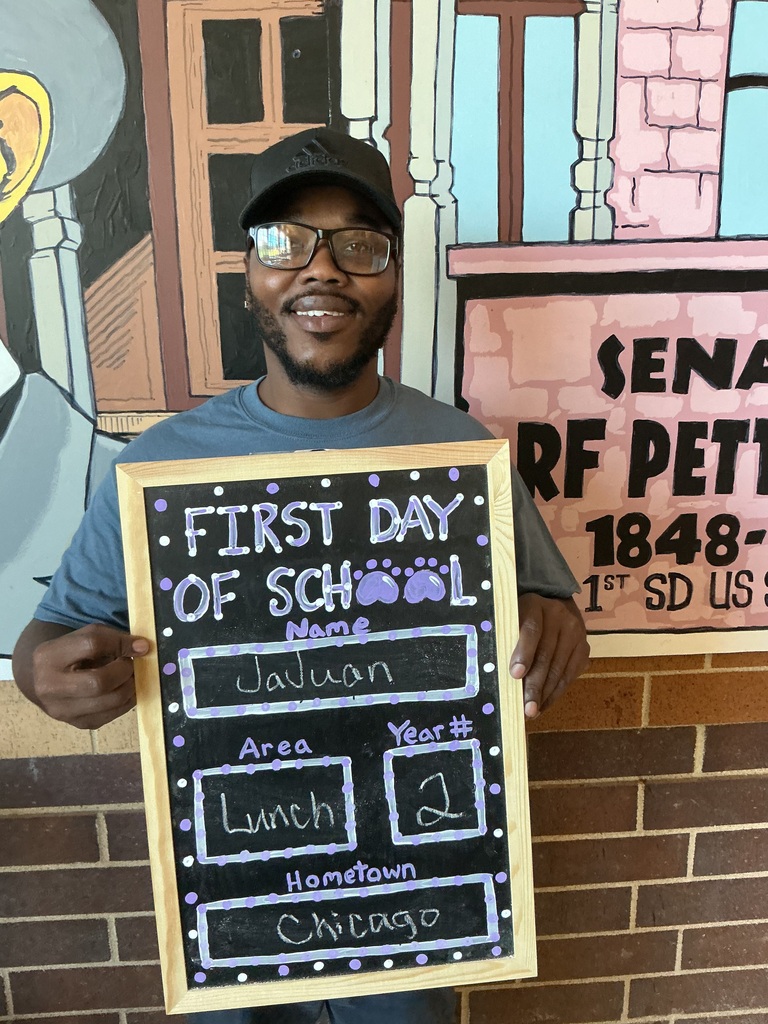 adidas
FIRST DAY
OF SCHOOL
Name
JaJuan
Area
Year #
Lunch
2
Hometown
Chicago
SENA
RF PETT
1848-
1ST SD US S